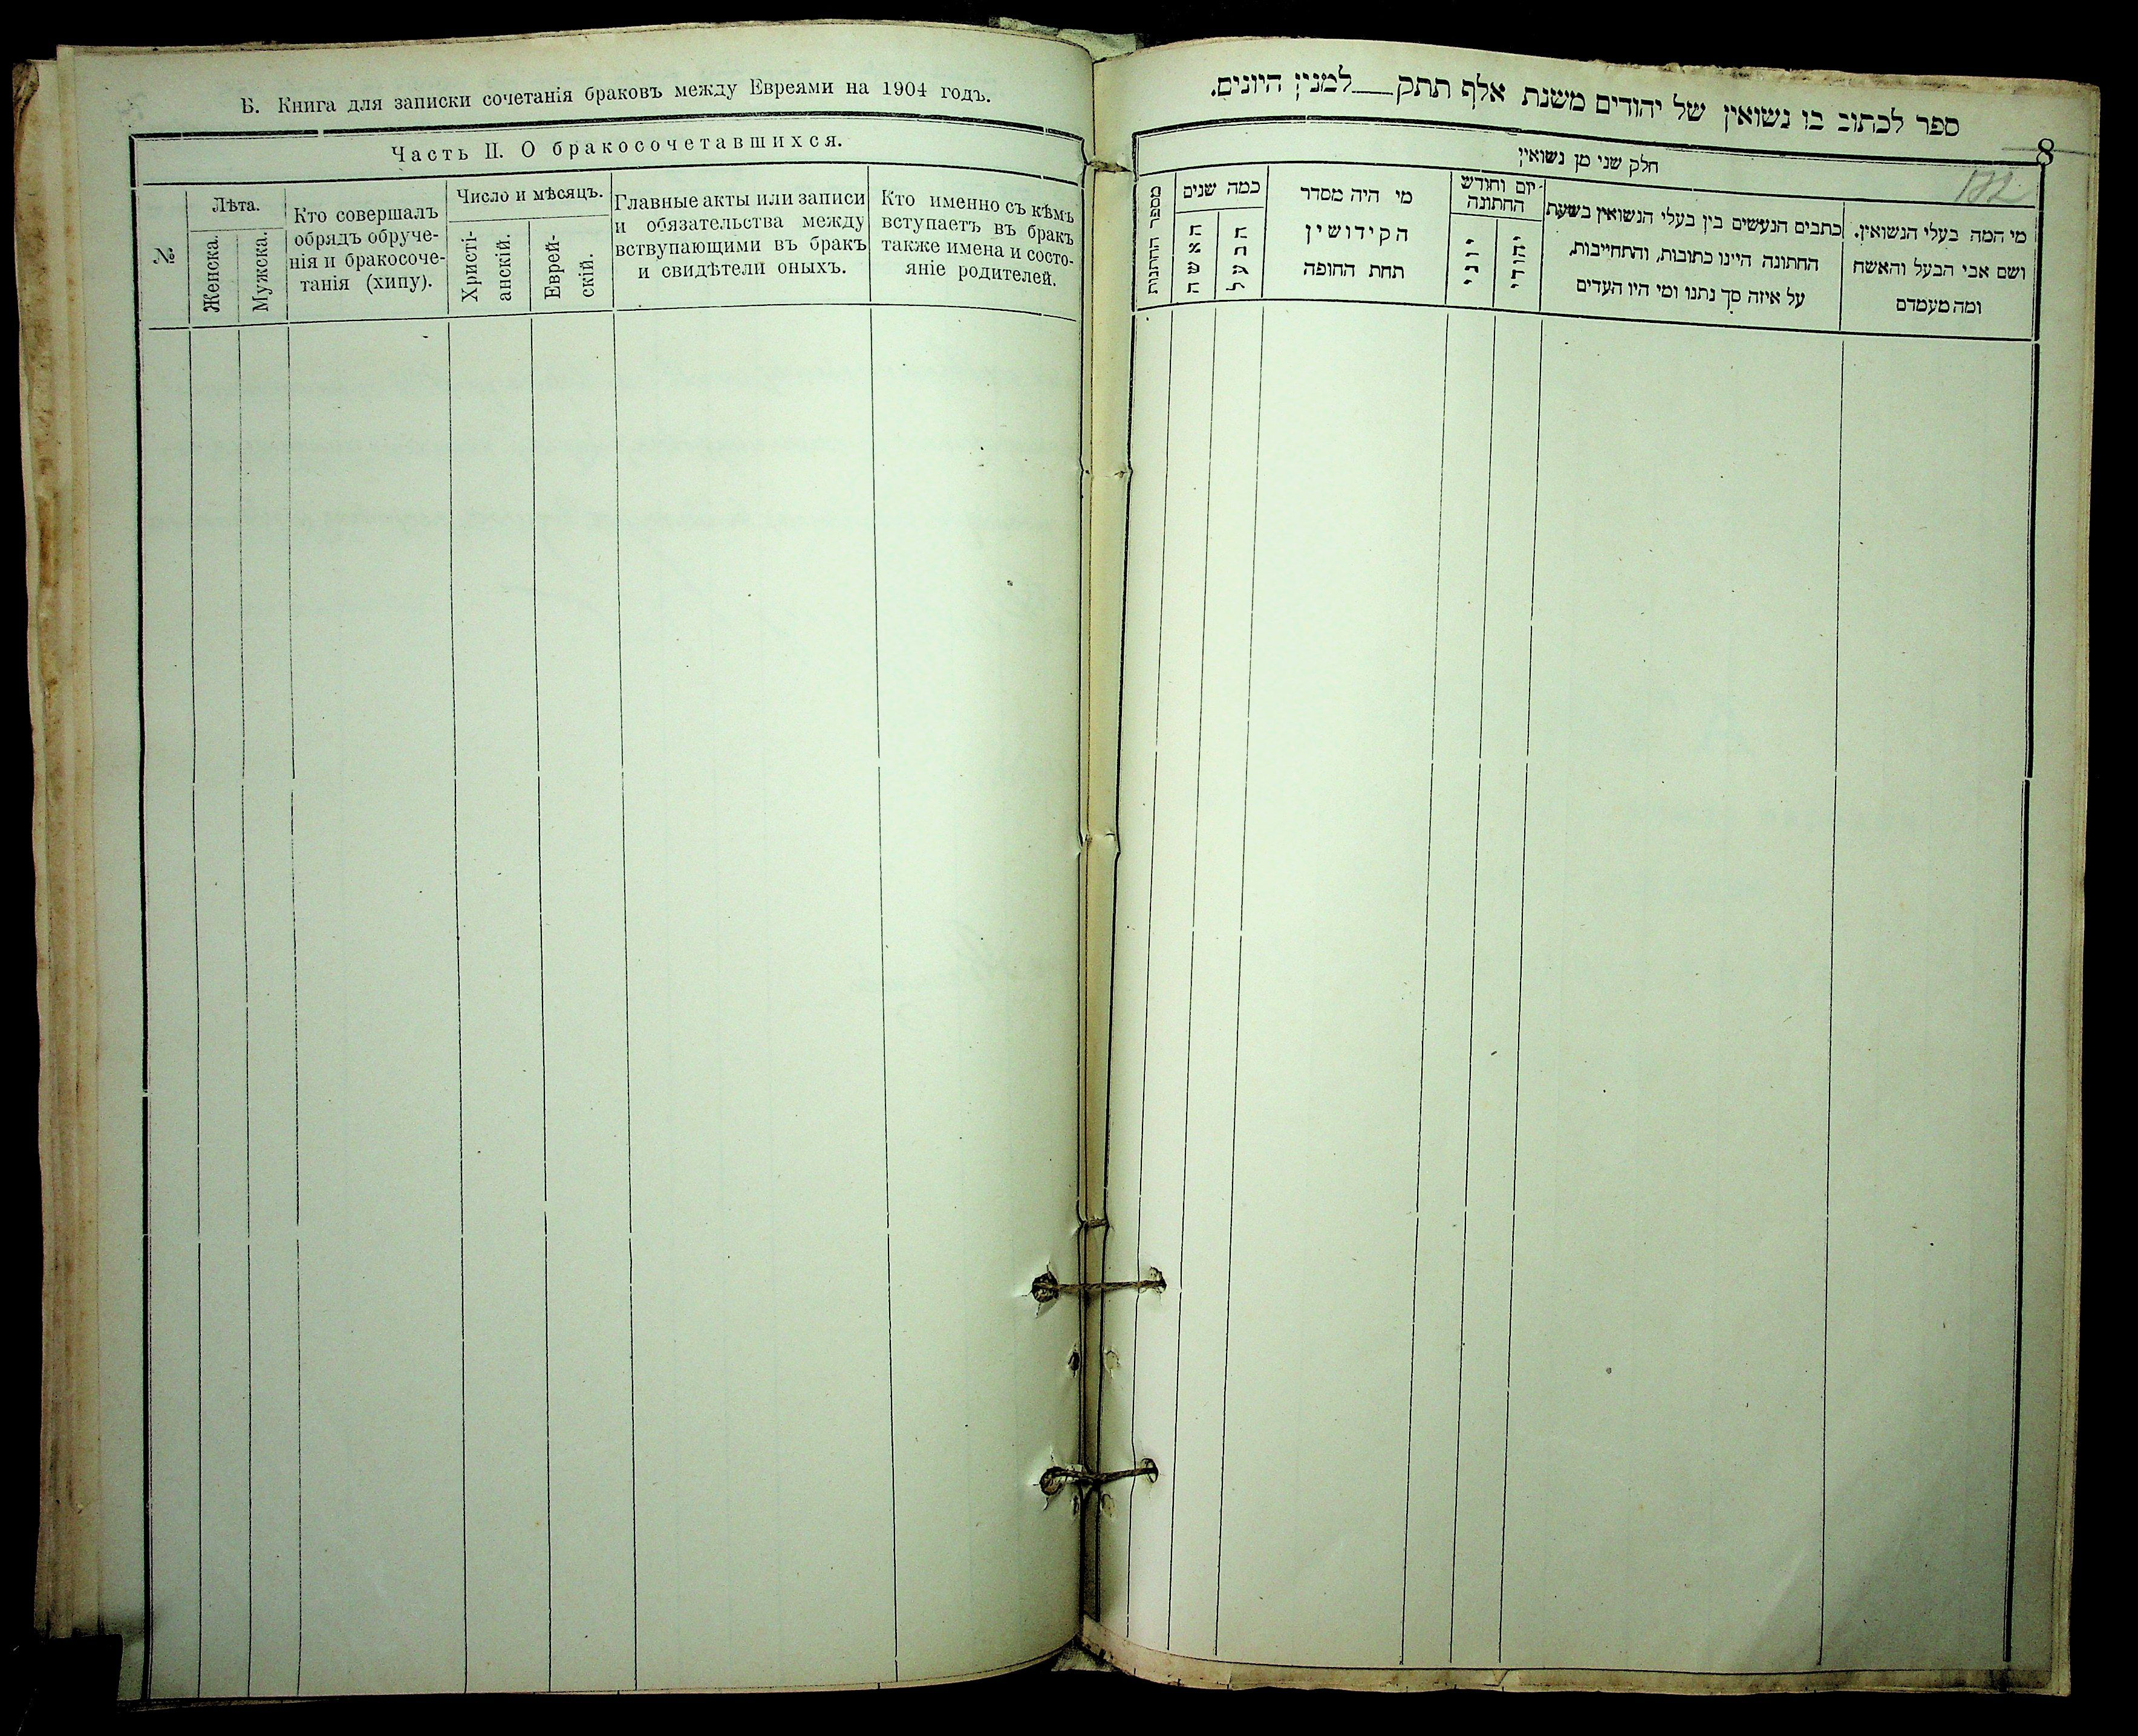 Б. Книга для записки сочетанія браковъ между Евреями на 1904 годъ.
Часть II. О бракосочетавшихся.
№
Лѣта.
Женска.
Мужска.
Кто совершалъ
обрядъ обруче-
нія и бракосоче-
танія (хипу).
Число и мѣсяцъ.
Христі-
анскій.
Еврей-
скій.
Главные акты или записи
и обязательства между
вствупающими въ бракъ
и свидѣтели оныхъ.
Кто именно съ кѣмъ
вступаетъ въ бракъ
также имена и состо-
яніе родителей.
ספר לכתוב בו נשואין של יהודים משנת אלף תתק__למנין היונים.
8
חלק שני מן נשואין
מי המה בעלי הנשואין.
ושם אבי הבעל והאשה
ומה מעמדם
כתבים הנעשים בין בעלי הנשואין בשעת
החתונה היינו כתובות, והתחייבות,
על איזה סך נתנו ומי היו העדים
יום וחודש
החתונה
יהודי
יוני
מי היה מסדר
הקידושין
תחת החופה
כמה שנים
הבעל
האשה
מספר החתונות